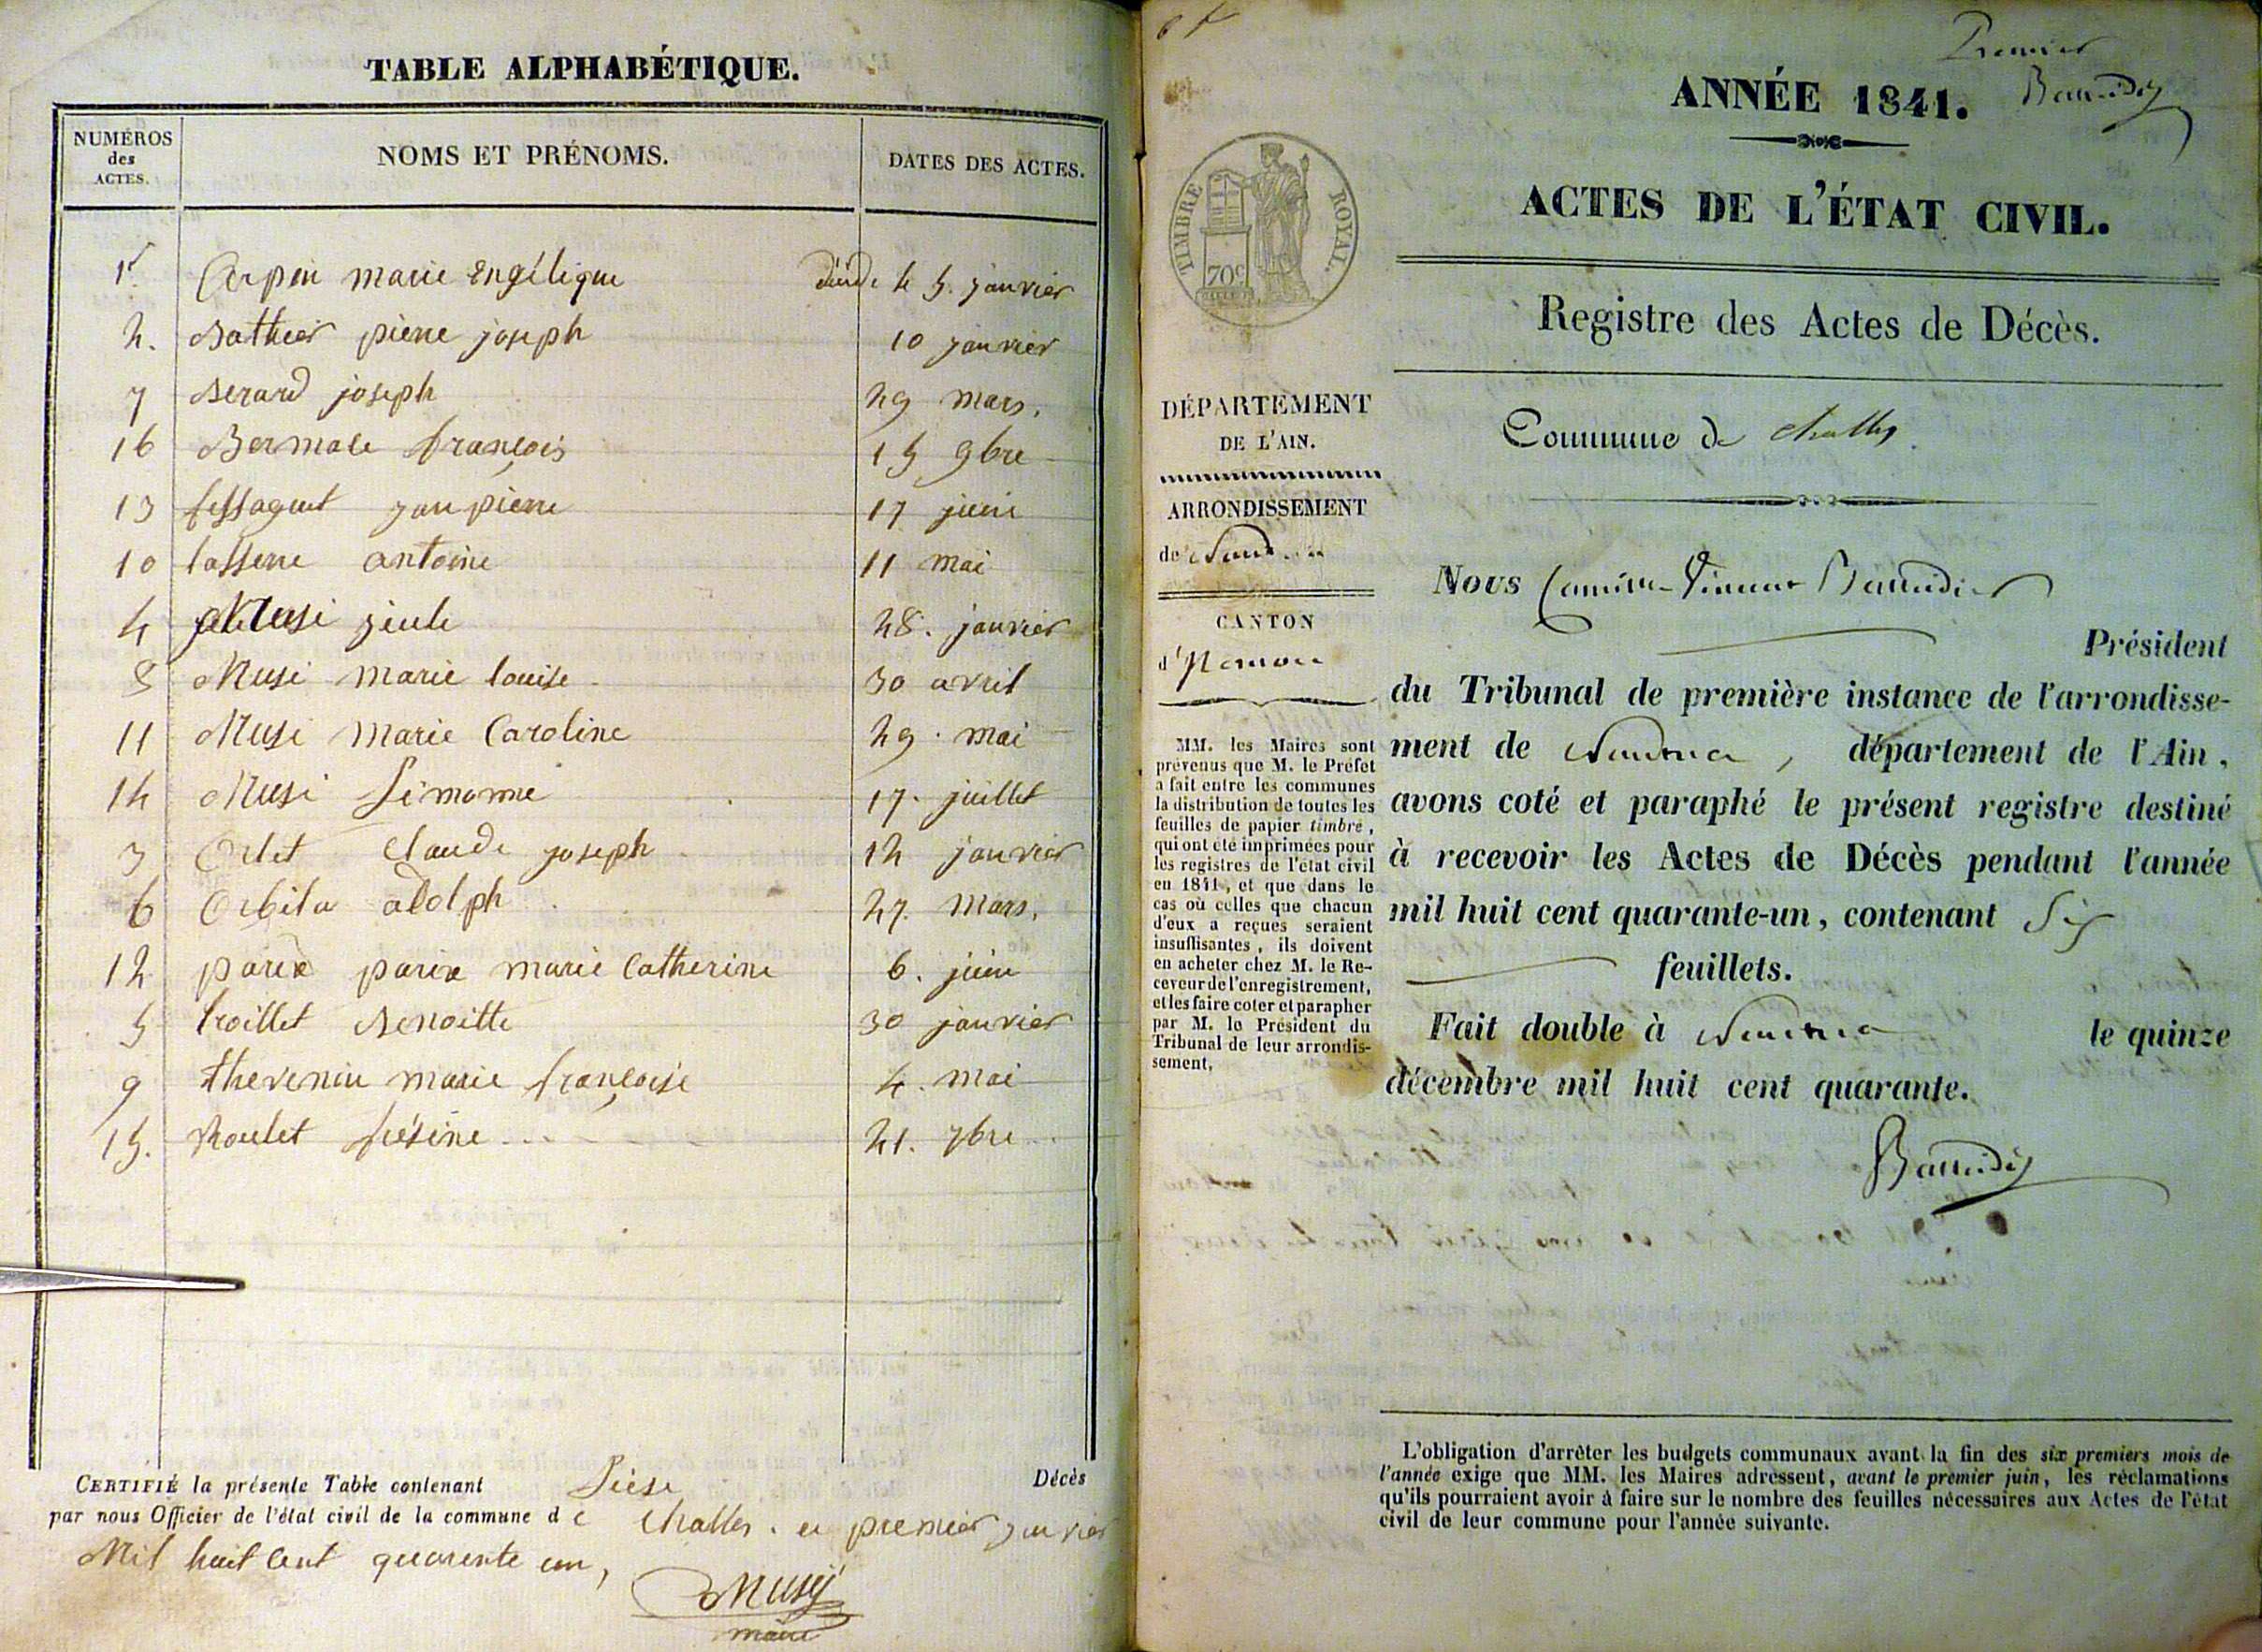 TABLE ALPHABÉTIQUE.
NUMÉROS
des
ACTES.
NOMS ET PRÉNOMS.
DATES DES ACTES.
1r. Carpin marie Engélique 5. janvier
2. Bathier pierre joseph 10 janvier
7 Berard joseph 29 mars.
16 françois 15 9bre
13 jan pierre 17 juin
10 lasserre antoine 11 mai
4 Musi jule 28. janvier
8 Musi marie louise 30 avril
11 Musi Marie Caroline 29. mai
14 Musi Simonne 17. juillet
3 Orlet Claude joseph 12 janvier
6 adolph 27. mars.
12 parix parix marie Catherine 6. juin
5 troillet Benoitte 30 janvier
9 thevenin marie françoise 4. mai
15. Roulet 21. 7bre
CERTIFIÉ la présente Table contenant Sieze Décès
par nous Officier de l'état civil de la commune de Challes. ce premier janvier
Mil huit Cent quarente un,
Musy
maire
Premier
Baudier
ANNÉE 1841.
ACTES DE L'ÉTAT CIVIL.
TIMBRE ROYAL.
70c
Registre des Actes de Décès.
Commune de Challes
DÉPARTEMENT
DE L'AIN.
ARRONDISSEMENT
de Nantua
CANTON
d'
MM. les Maires sont
prévenus que M. le Préfet
a fait entre les communes
la distribution de toutes les
feuilles de papier timbré,
qui ont été imprimées pour
les registres de l'état civil
en 1841, et que dans le
cas où celles que chacun
d'eux a reçues seraient
insuffisantes, ils doivent
en acheter chez M. le Re-
ceveur de l'enregistrement,
et les faire coter et parapher
par M. le Président du
Tribunal de leur arrondis-
sement.
Nous
Président
du Tribunal de première instance de l'arrondisse-
ment de Nantua, département de l'Ain,
avons coté et paraphé le présent registre destiné
à recevoir les Actes de Décès pendant l'année
mil huit cent quarante-un, contenant Six
feuillets.
Fait double à Nantua le quinze
décembre mil huit cent quarante.
L'obligation d'arrêter les budgets communaux avant la fin des six premiers mois de
l'année exige que MM. les Maires adressent, avant le premier juin, les réclamations
qu'ils pourraient avoir à faire sur le nombre des feuilles nécessaires aux Actes de l'état
civil de leur commune pour l'année suivante.